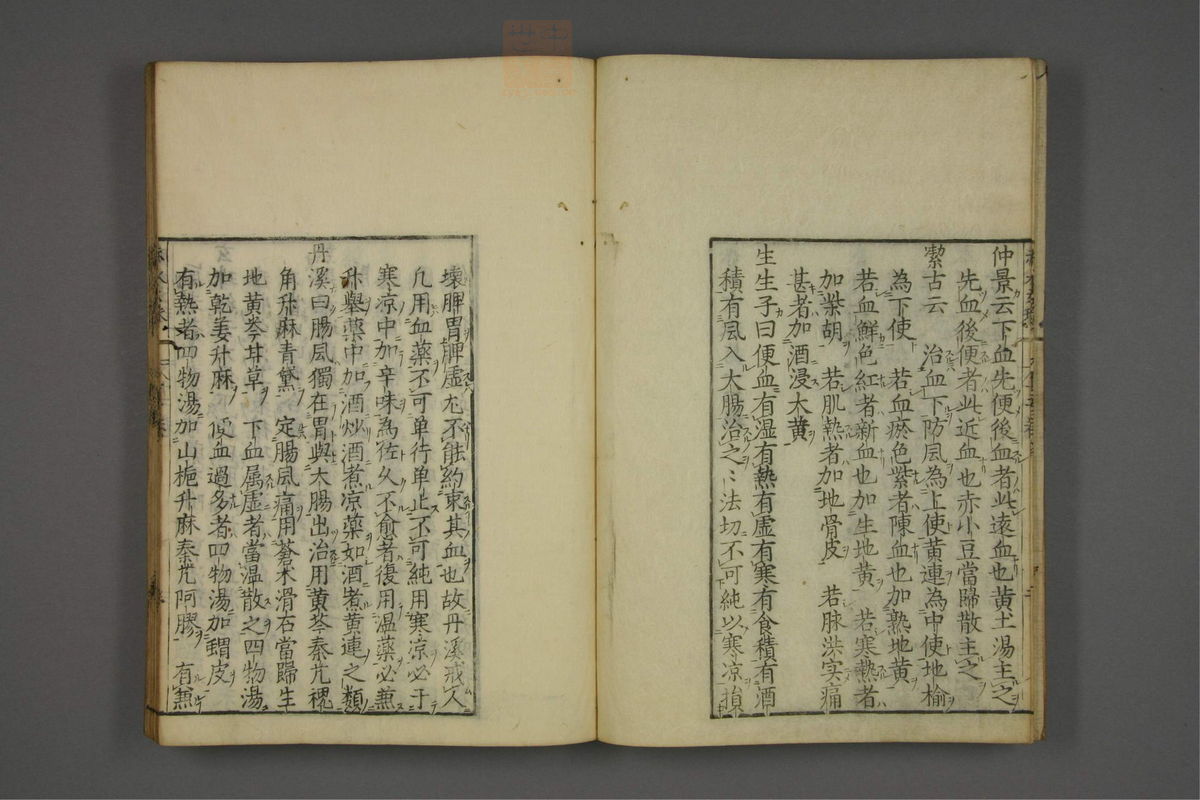 仲景云下血先便後血者此遠血也黄土湯主之
先血後便者此近血也赤小豆當歸散主之
潔古云　治血下防風為上使黄連為中使地榆
為下使　若血瘀色紫者陳血也加熟地黄
若血鮮色紅者新血也加生地黄　若寒熱者
加柴胡　若肌熱者加地骨皮　若脉洪实痛
甚者加酒浸大黄
生生子曰便血有湿有熱有虚有寒有食積有酒
積有風入大腸治之〻法切不可純以寒凉損
壊脾胃脾虚尤不能約束其血也故丹溪戒人
凡用血藥不可単行単止不可純用寒凉必于
寒凉中加辛味為佐久不愈者復用温藥必兼
升舉藥中加酒炒酒煮凉藥如酒煮黄連之類
丹溪曰腸風獨在胃與大腸出治用黄芩秦艽槐
角升麻青黛　定腸風痛用蒼术滑石當歸生
地黄芩甘草　下血属虚者當温散之四物湯
加乾姜升麻　便血過多者四物湯加猬皮
有熱者四物湯加山梔升麻秦艽阿膠　有兼